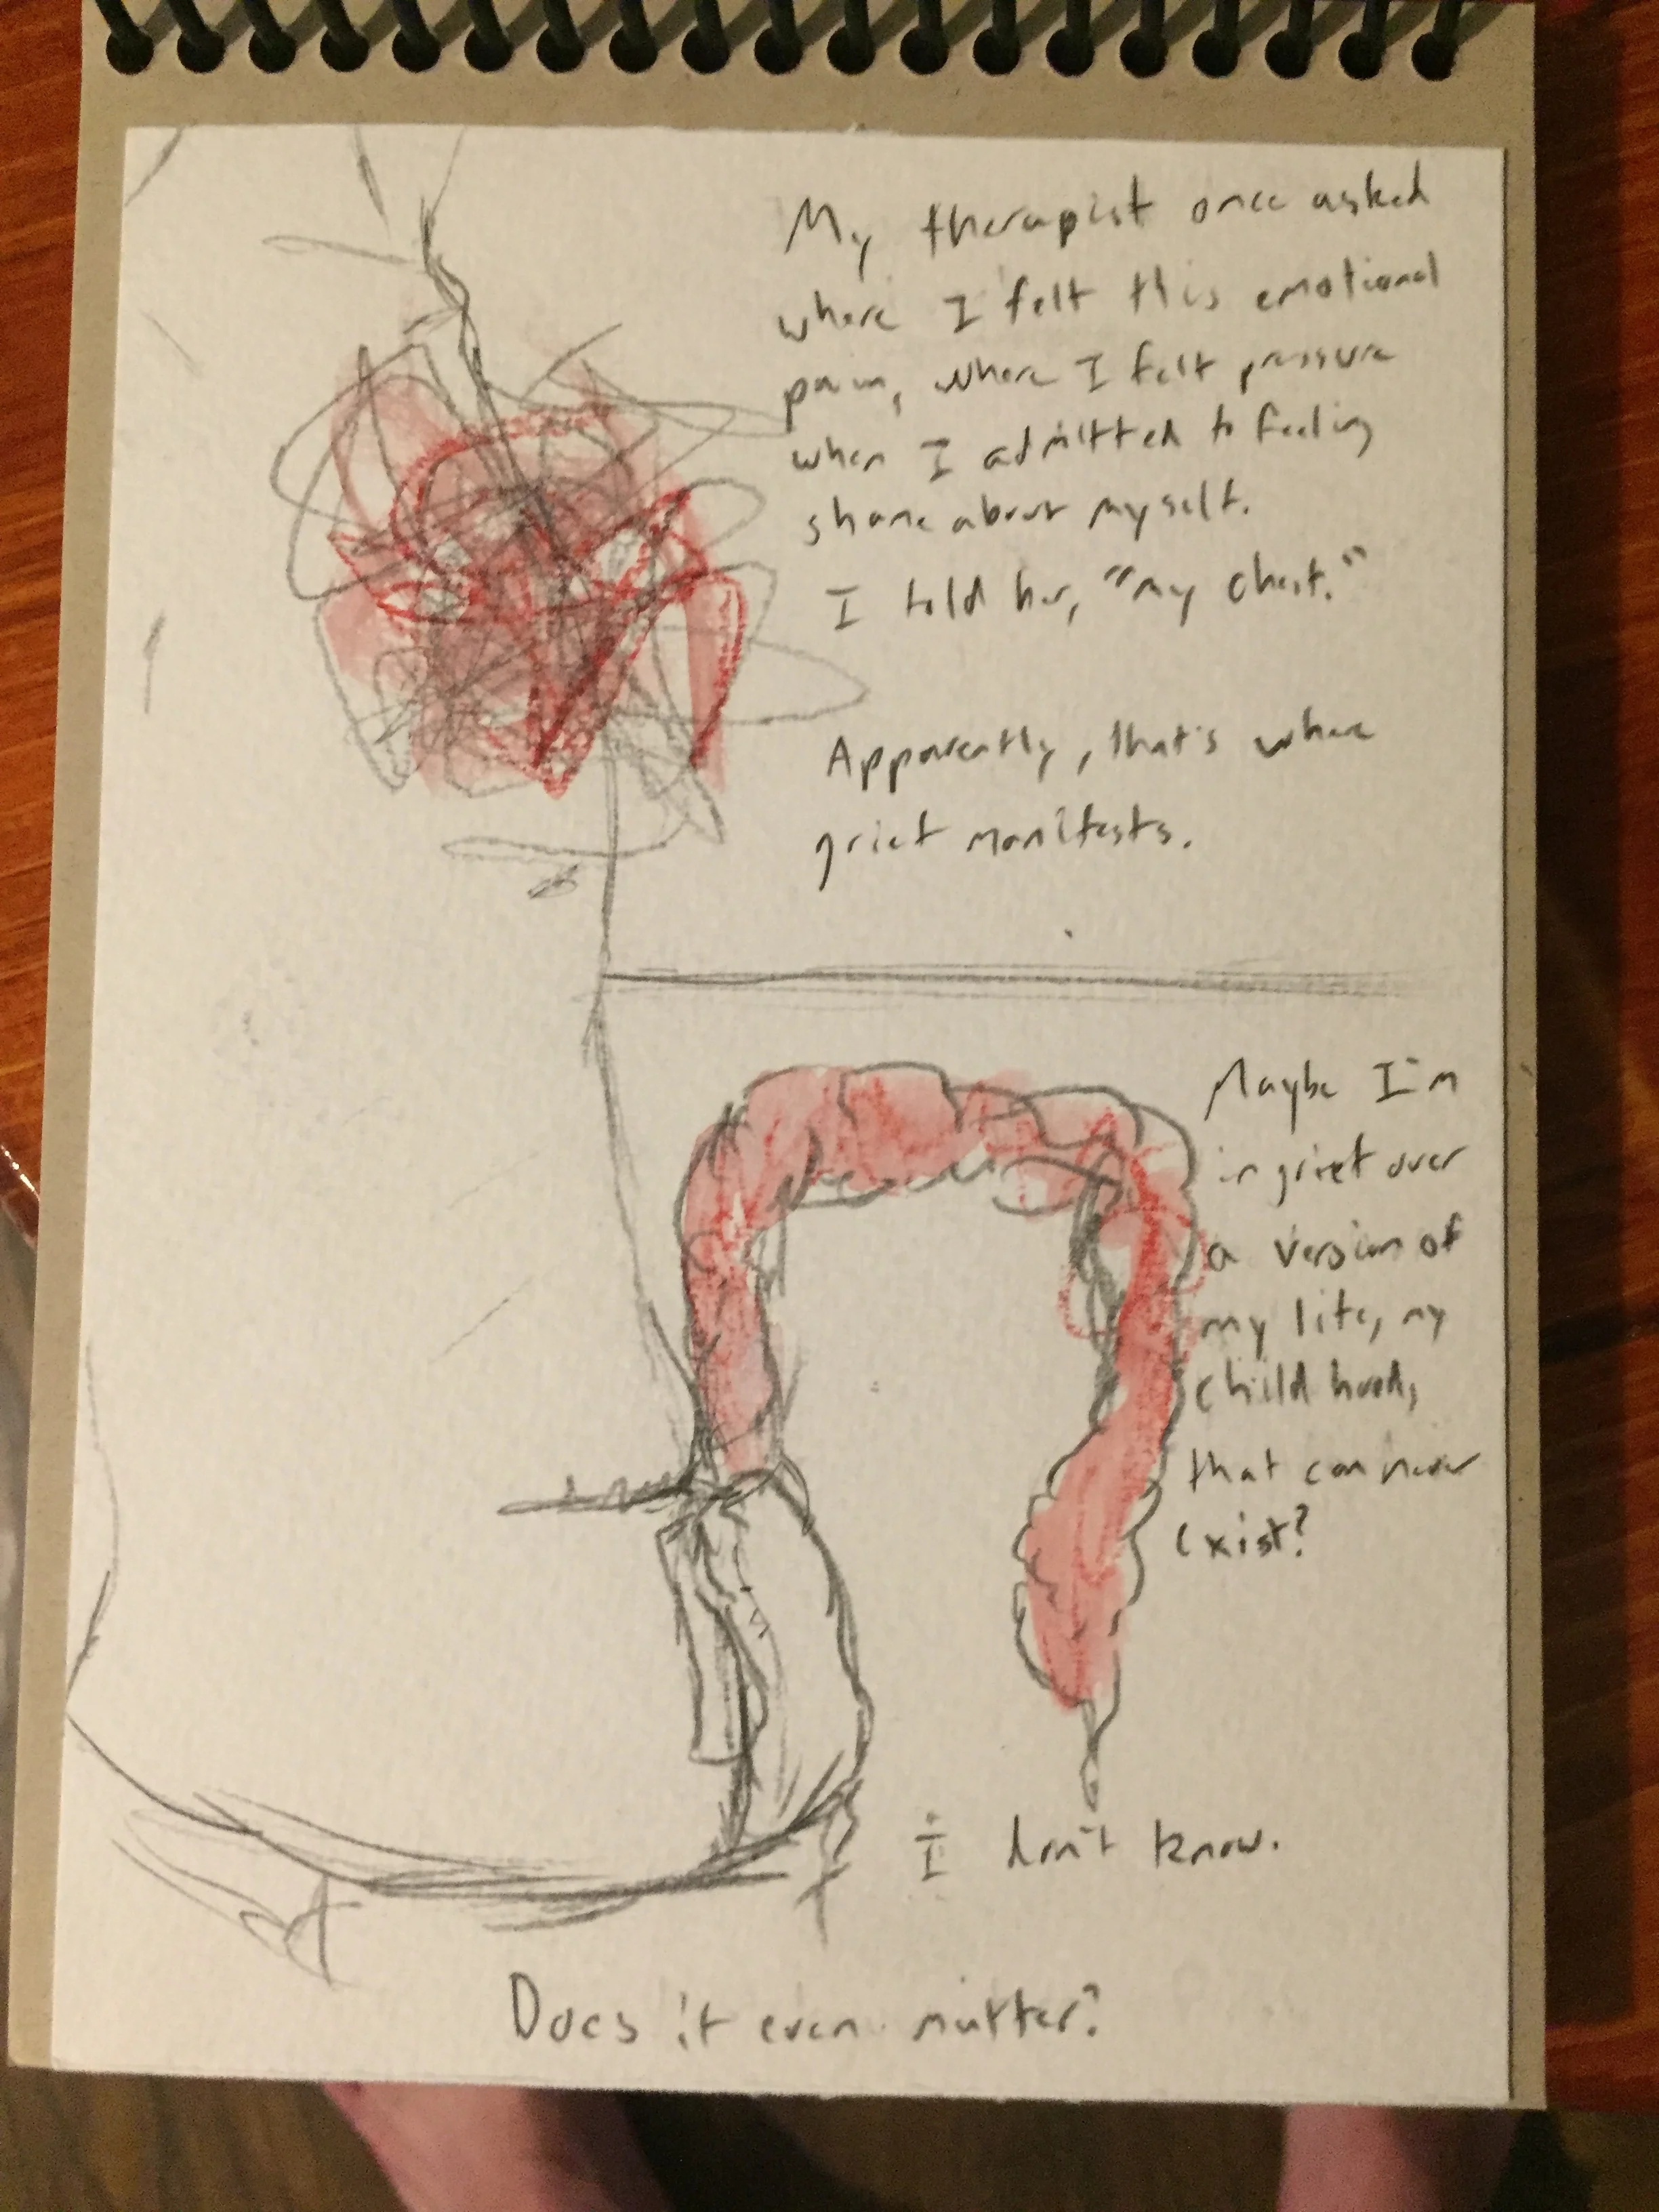 My therapist once asked
where I felt this emotional
pain, where I felt pressure
when I admitted to feeling
shame about myself.
I told her, "my chest."
Apparently, that's where
grief manifests.
Maybe I'm
in grief over
a version of
my life, my
childhood,
that can never
exist?
I don't know.
Does it even matter?